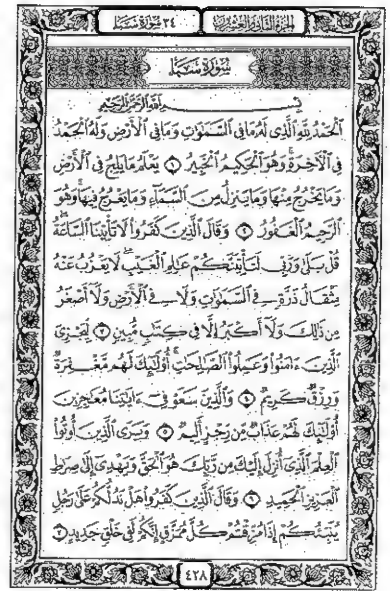 الجزء الثاني والعشرون ٣٤ سورة سبإ
سورة سبإ
بسم الله الرحمن الرحيم
ٱلْحَمْدُ لِلَّهِ ٱلَّذِى لَهُۥ مَا فِى ٱلسَّمَٰوَٰتِ وَمَا فِى ٱلْأَرْضِ وَلَهُ ٱلْحَمْدُ
فِى ٱلْءَاخِرَةِ ۚ وَهُوَ ٱلْحَكِيمُ ٱلْخَبِيرُ ١ يَعْلَمُ مَا يَلِجُ فِى ٱلْأَرْضِ
وَمَا يَخْرُجُ مِنْهَا وَمَا يَنزِلُ مِنَ ٱلسَّمَآءِ وَمَا يَعْرُجُ فِيهَا ۚ وَهُوَ
ٱلرَّحِيمُ ٱلْغَفُورُ ٢ وَقَالَ ٱلَّذِينَ كَفَرُوا۟ لَا تَأْتِينَا ٱلسَّاعَةُ ۖ
قُلْ بَلَىٰ وَرَبِّى لَتَأْتِيَنَّكُمْ عَٰلِمِ ٱلْغَيْبِ ۖ لَا يَعْزُبُ عَنْهُ
مِثْقَالُ ذَرَّةٍ فِى ٱلسَّمَٰوَٰتِ وَلَا فِى ٱلْأَرْضِ وَلَآ أَصْغَرُ
مِن ذَٰلِكَ وَلَآ أَكْبَرُ إِلَّا فِى كِتَٰبٍ مُّبِينٍ ٣ لِّيَجْزِىَ
ٱلَّذِينَ ءَامَنُوا۟ وَعَمِلُوا۟ ٱلصَّٰلِحَٰتِ ۚ أُو۟لَٰٓئِكَ لَهُم مَّغْفِرَةٌ
وَرِزْقٌ كَرِيمٌ ٤ وَٱلَّذِينَ سَعَوْ فِىٓ ءَايَٰتِنَا مُعَٰجِزِينَ
أُو۟لَٰٓئِكَ لَهُمْ عَذَابٌ مِّن رِّجْزٍ أَلِيمٌ ٥ وَيَرَى ٱلَّذِينَ أُوتُوا۟
ٱلْعِلْمَ ٱلَّذِىٓ أُنزِلَ إِلَيْكَ مِن رَّبِّكَ هُوَ ٱلْحَقَّ وَيَهْدِىٓ إِلَىٰ صِرَٰطِ
ٱلْعَزِيزِ ٱلْحَمِيدِ ٦ وَقَالَ ٱلَّذِينَ كَفَرُوا۟ هَلْ نَدُلُّكُمْ عَلَىٰ رَجُلٍ
يُنَبِّئُكُمْ إِذَا مُزِّقْتُمْ كُلَّ مُمَزَّقٍ إِنَّكُمْ لَفِى خَلْقٍ جَدِيدٍ ٧
٤٢٨